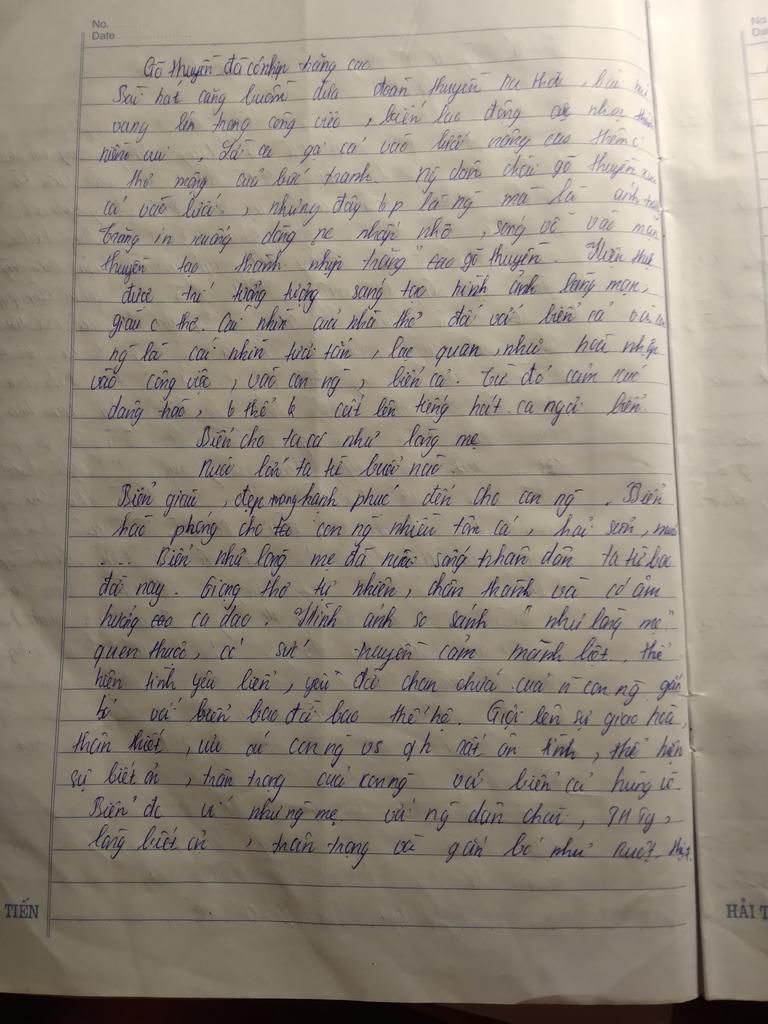 No.
Date
Gõ thuyền đã có nhịp trăng cao.
Bài hát căng buồm đưa đoàn thuyền ra khơi, bài
vang lên trong công việc, biến lao động nhọc
niềm vui, Là ca gọi cá vào lưới nâng cao thêm c
thơ mộng của bức tranh. ng dân chài gõ thuyền xua
cá vào lưới, nhưng đây k p là ng mà là ánh trăng
trăng in xuống dòng nc nhấp nhô, sóng vỗ vào mạn
thuyền tạo thành nhịp "trăng cao" gõ thuyền. Hiện thực
được trí tưởng tượng sáng tạo hình ảnh lãng mạn,
giàu c thơ. Cái nhìn của nhà thơ đối với biển cả và con
ng là cái nhìn tươi tắn, lạc quan, như hoà nhập
vào công việc, vào con ng, biển cả. Từ đó cảm xúc
dạng hào, k thể k cất lên tiếng hát ca ngợi biển.
Biển cho ta cá như lòng mẹ
Nuôi lớn ta từ buổi nào.
Biển giàu, đẹp mang hạnh phúc đến cho con ng. Biển
hào phóng cho ta con ng nhiều tôm cá, hải sản, muối
.... Biển như lòng mẹ đã nuôi sống nhân dân ta từ bao
đời nay. Giọng thơ tự nhiên, chân thành và có âm
hưởng cao ca dao. Hình ảnh so sánh "như lòng mẹ"
quen thuộc, có sức truyền cảm mãnh liệt, thể
hiện tình yêu biển, yêu đời chan chứa của n con ng gắn
bó với biển bao đời bao thế hệ. Gợi lên sự giao hoà,
thân thiết, ưu ái con ng vs qh rất ân tình, thể hiện
sự biết ơn, trân trọng của con ng với biển cả hùng vĩ.
Biển đc ví như ng mẹ với ng dân chài,
lòng biết ơn, trân trọng và gắn bó như ruột thịt.
TIẾN
No
Da
HẢI T